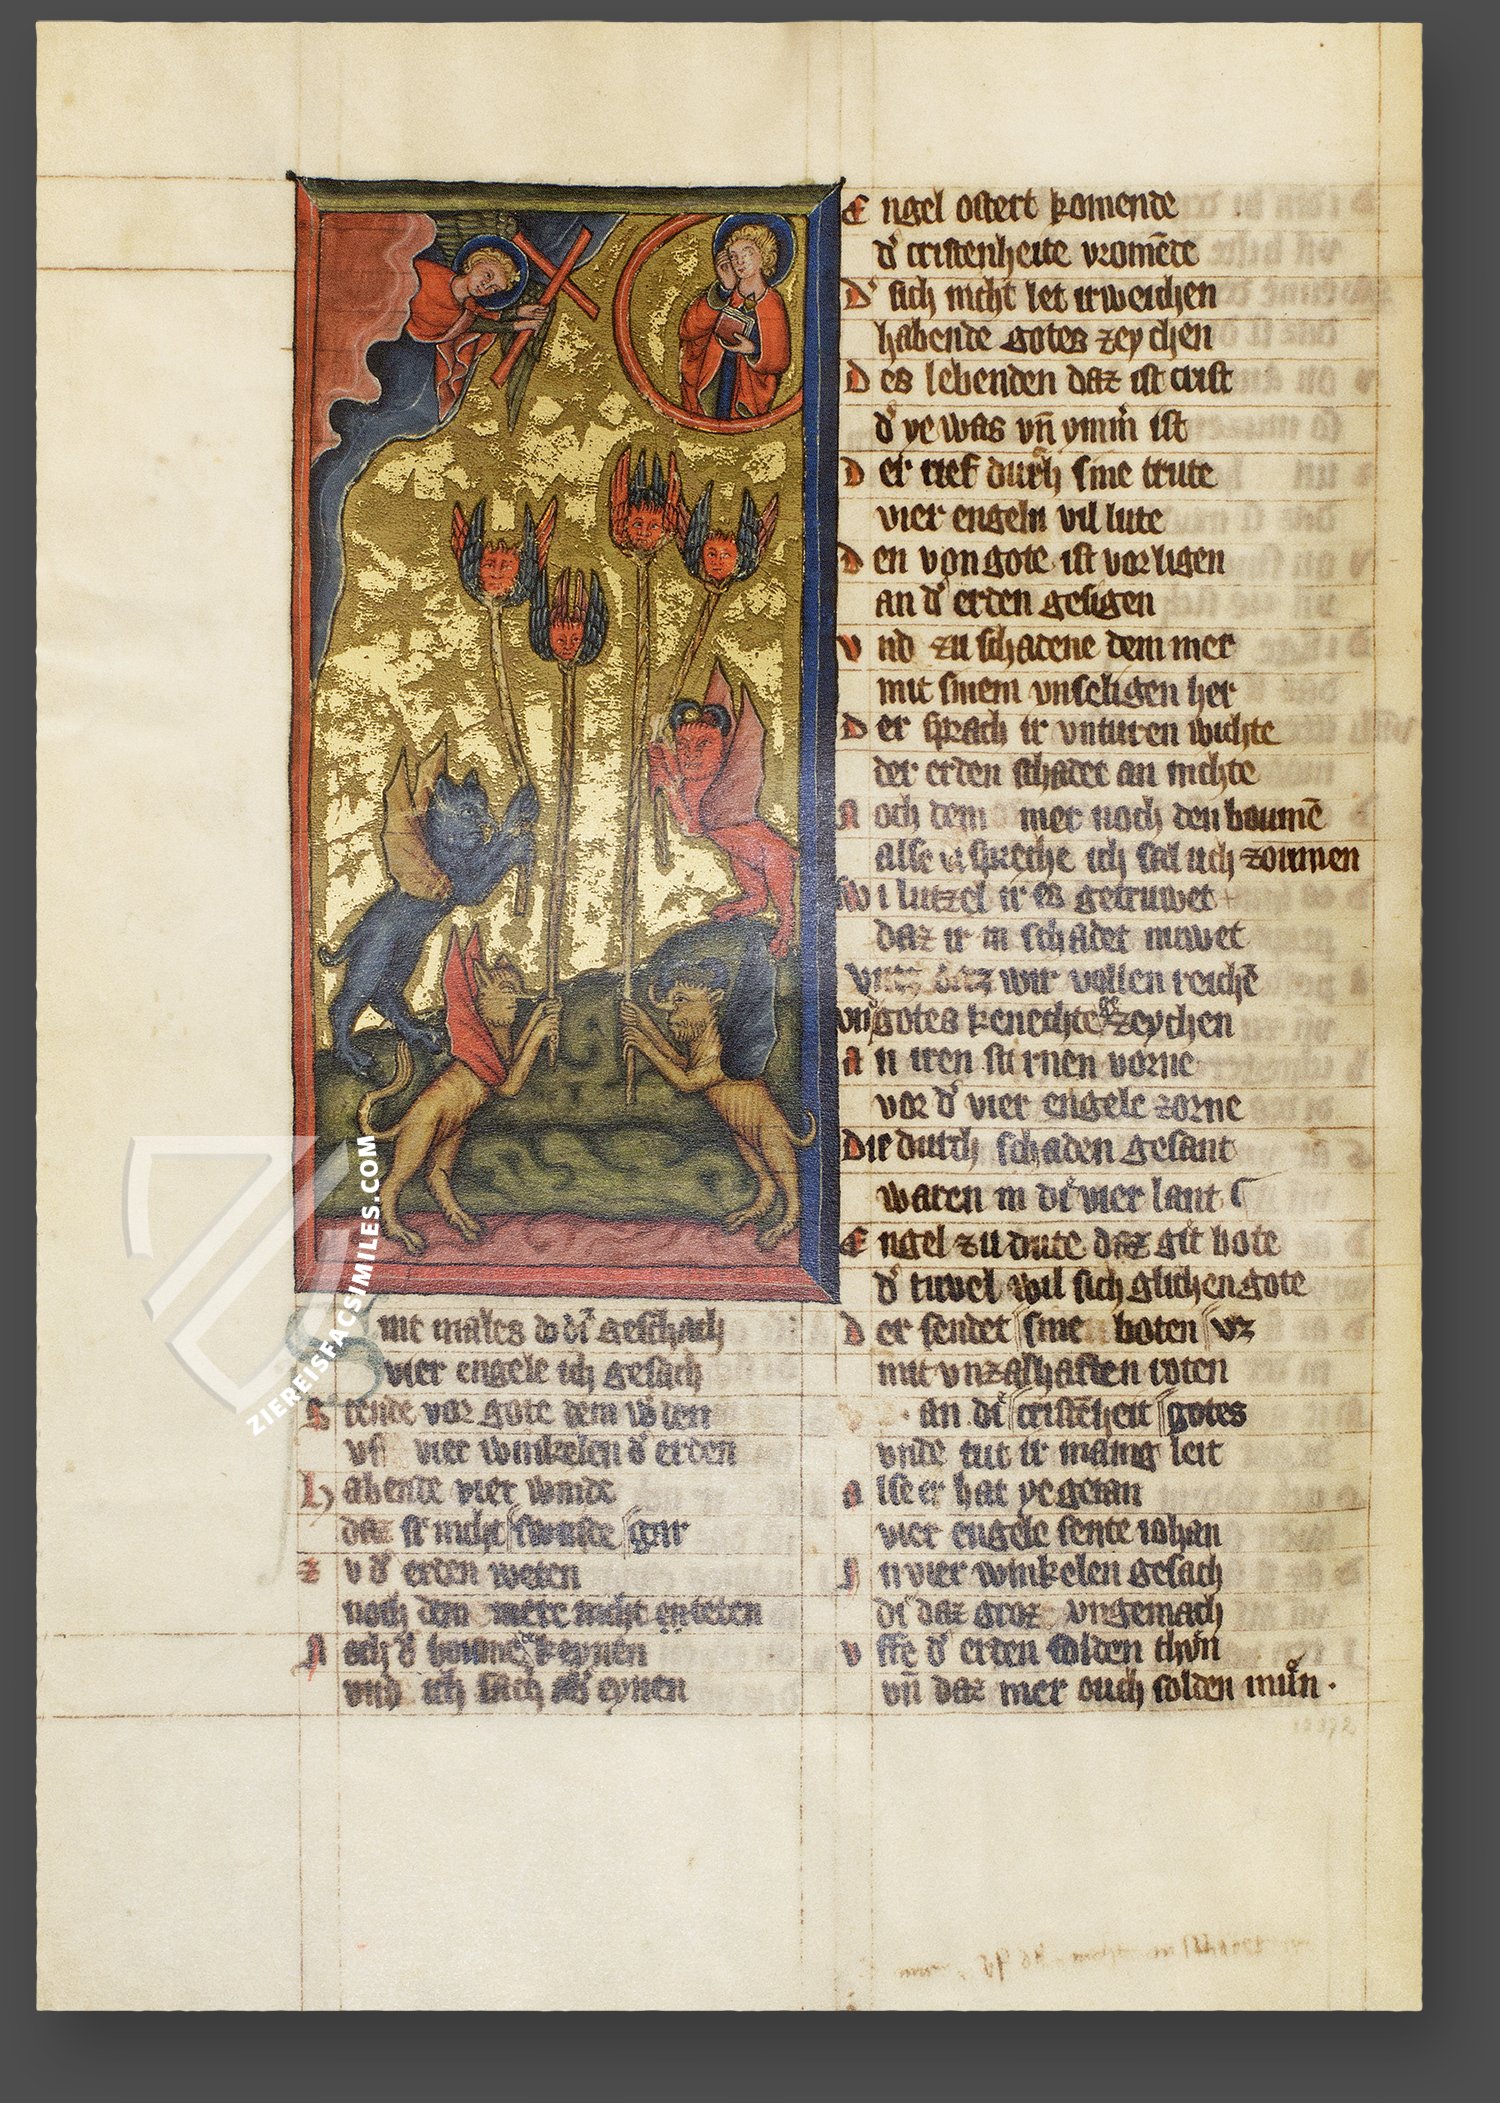 mit males do di geschach
vier engele ich gesach
S tende vor gote dem w den
vff vier winkelen d' erden
h abende vier winde
daz si nicht swinde gar
z v d' erden weten
noch dem mere nicht enteten
N och d' boume keynen
vnd ich sach eynen
E ngel ostert komende
d' cristenheite vromēde
D' sich nicht let irweichen
habende gotes zeychen
D es lebenden daz ist crist
d' ye was vn̄ ymm' ist
D er rief durch sine trute
vier engeln vil lute
D en von gote ist vorligen
an d' erden gesigen
v nd zu schadene dem mer
mit sinem vnseligen her
D er sprach ir vnturen wichte
der erden schadet an nichte
N och dem mer noch den boumē
alse spreche ich sal uch zoumen
Sw i lutzel ir es getruwet
daz ir in schadet nuwet
vntz daz wir vollen reichē
vn̄ gotes knechte zeychen
A n iren stirnen vorne
vor d' vier engele zorne
Die durch schaden gesant
waren in di vier lant
E ngel zu dute daz git bote
d' tuvel wil sich glichen gote
D er sendet sine boten vz
mit vnzalhaften roten
an di cristēheit gotes
vnde tut ir manig leit
a lse er hat ye getan
vier engele sente iohan
I n vier winkelen gesach
di daz groz vngemach
v ffe d' erden solden thun
vn̄ daz mer ouch solden mun.
ZIEREISFACSIMILES.COM